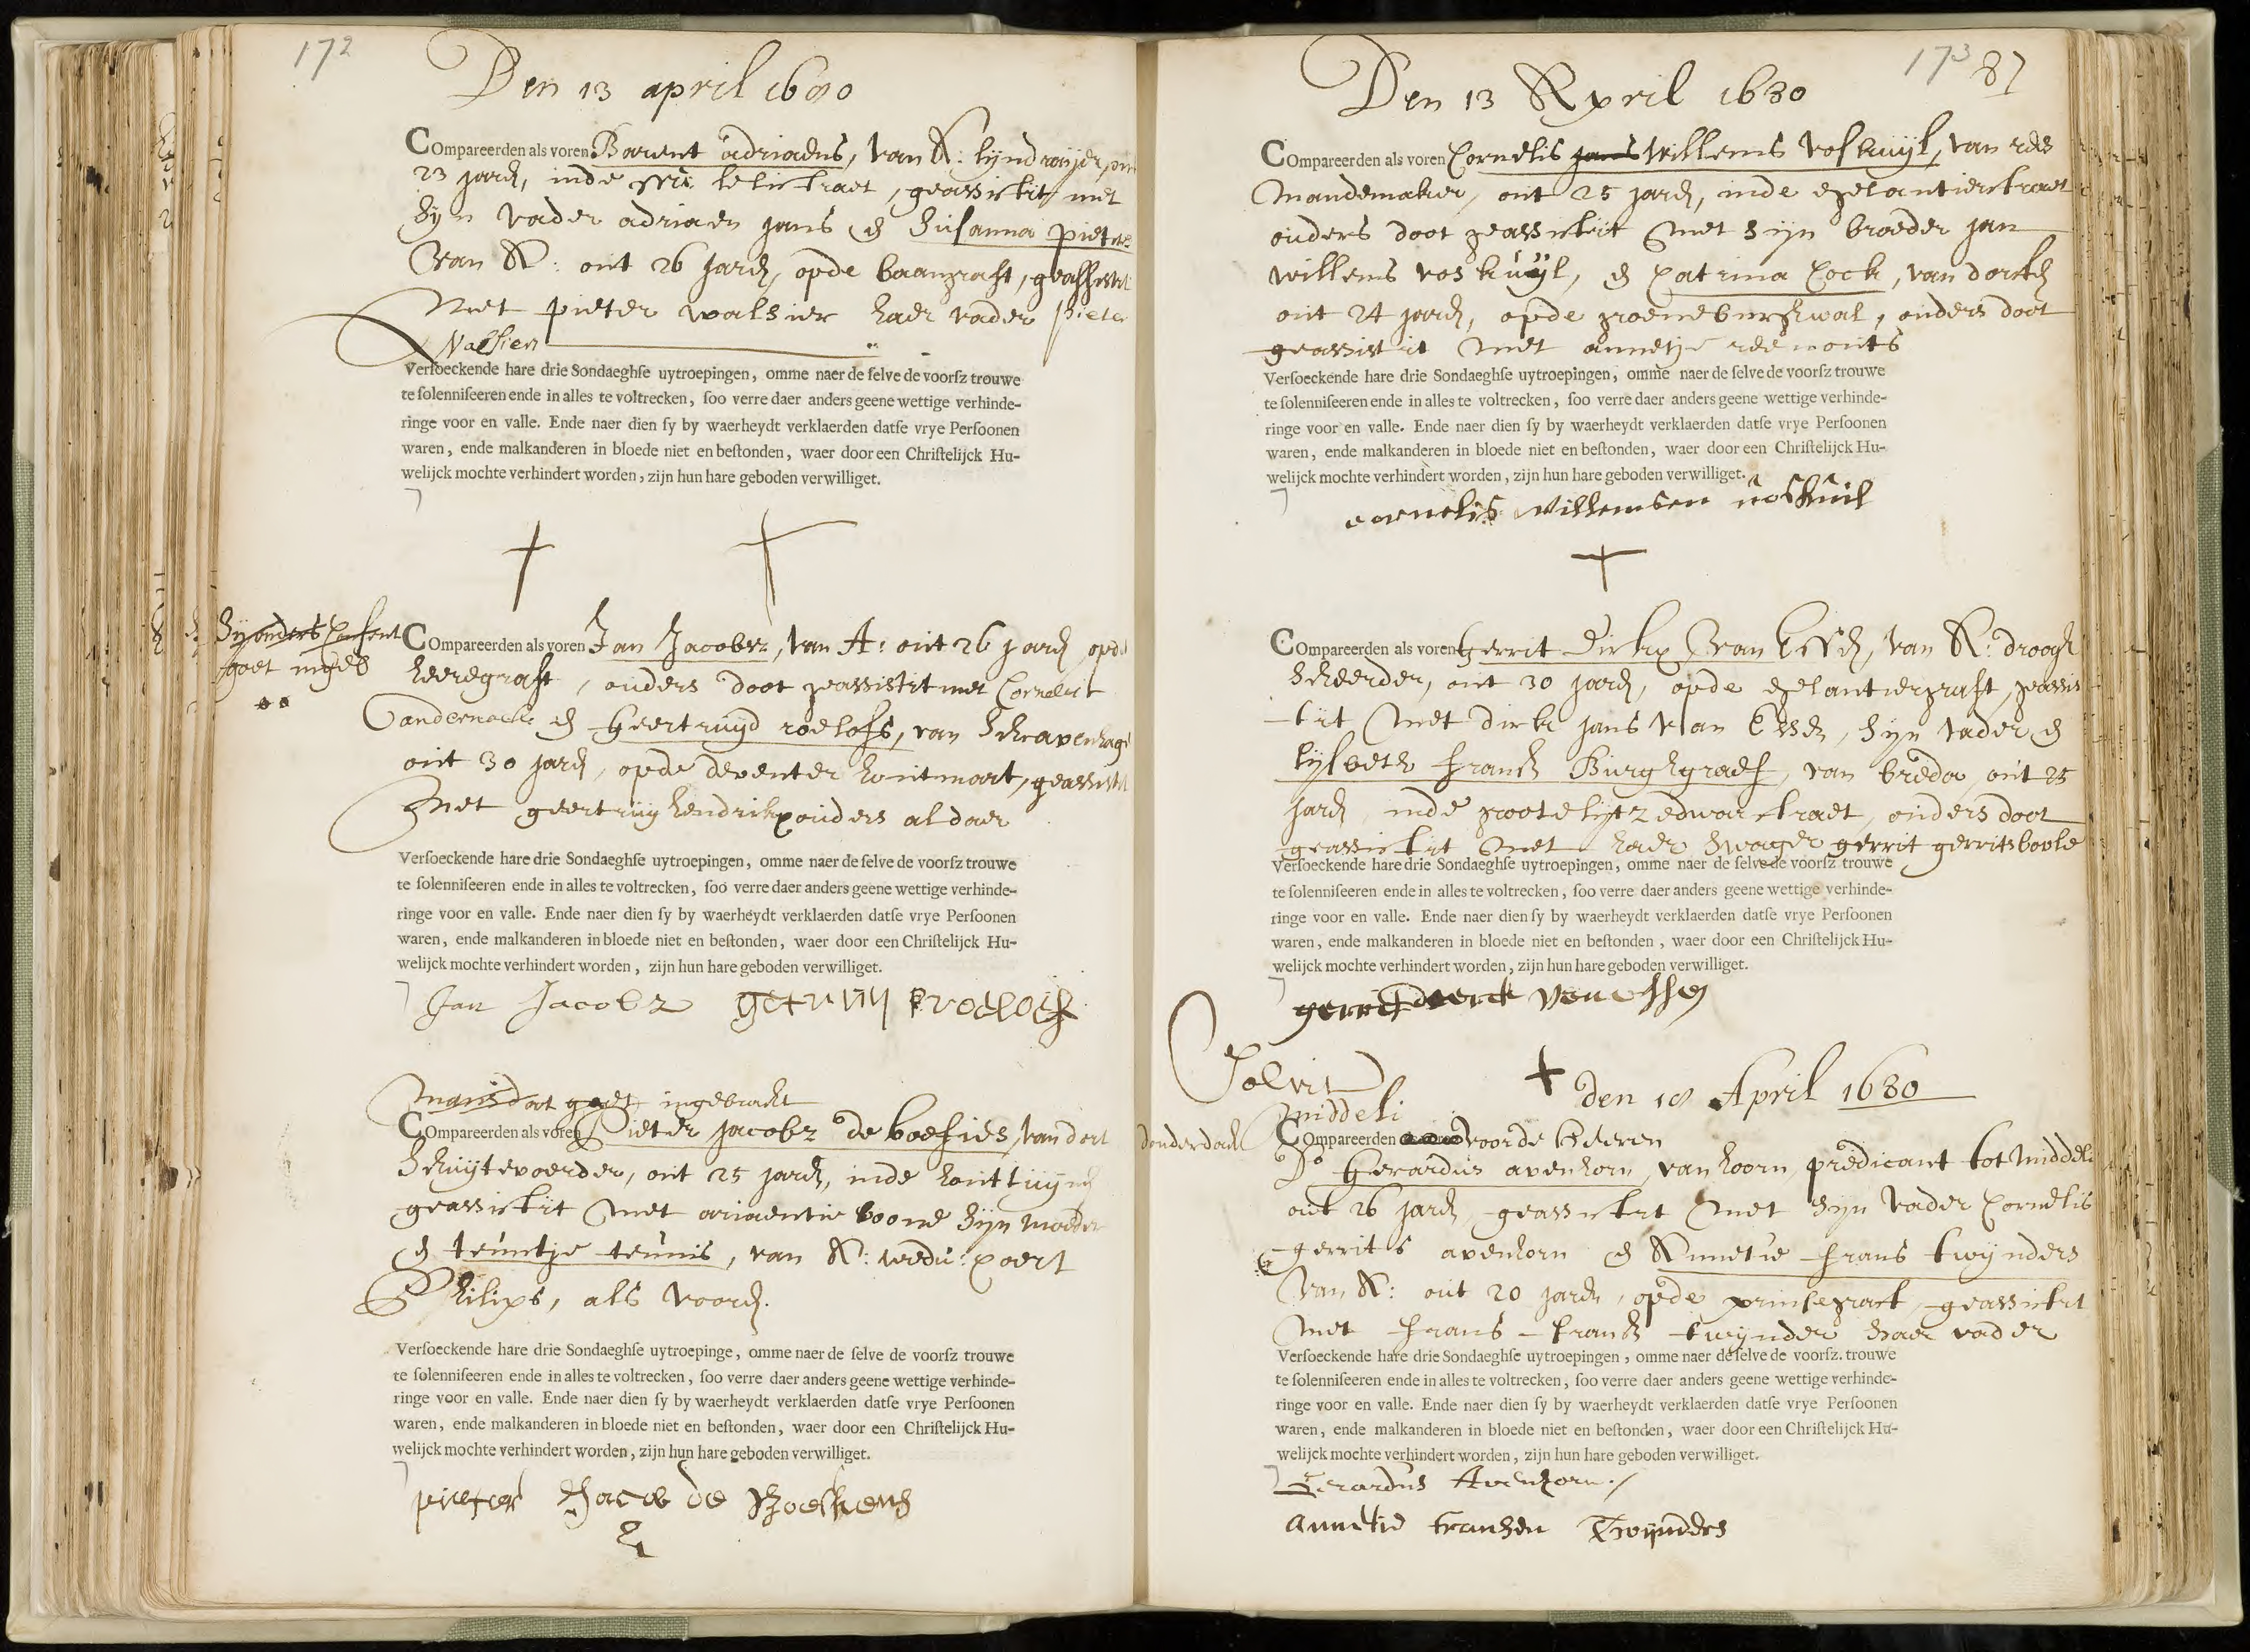 172
Den 13 april 1680
COmpareerden als voren Barent adriaens, van A: lyndraijer, out
23 jaren, inde straet, geassisteert met
syn vader adriaen jans & Susanna pieters
van A: out 26 jaren, opde baangraft, geassisteert
Met pieter walsier haer vader pieter
Walsien
Verſoeckende hare drie Sondaeghſe uytroepingen, omme naer de ſelve de voorſz trouwe
te ſolenniſeeren ende in alles te voltrecken, ſoo verre daer anders geene wettige verhinde-
ringe voor en valle. Ende naer dien ſy by waerheydt verklaerden datſe vrye Perſoonen
waren, ende malkanderen in bloede niet en beſtonden, waer door een Chriſtelijck Hu-
welijck mochte verhindert worden, zijn hun hare geboden verwilliget.
Syouders Consent
goet ingeb
COmpareerden als voren Jan Jacobsz, van A: out 26 jaren opde
heeregraft, ouders doot geassisteert met Cornelis
Vandernach & Geertruyd roelofs, van Schravenhage
out 30 jaren, opde deventer houtmart, geassisteert
Met geertruy hendrikx ouders aldaer
Verſoeckende hare drie Sondaeghſe uytroepingen, omme naer de ſelve de voorſz trouwe
te ſolenniſeeren ende in alles te voltrecken, ſoo verre daer anders geene wettige verhinde-
ringe voor en valle. Ende naer dien ſy by waerheydt verklaerden datſe vrye Perſoonen
waren, ende malkanderen in bloede niet en beſtonden, waer door een Chriſtelijck Hu-
welijck mochte verhindert worden, zijn hun hare geboden verwilliget.
Jan Jacobz getruy roelofs
mansdoot goet ingebracht
COmpareerden als voren Pieter jacobz de boefies, van dort
Schuytevoerder, out 25 jaren, inde houttuynen
geassisteert Met ariaentie boone syn moeder
& teuntje teunis, van A: wedu: coert
Philips, als vooren.
Verſoeckende hare drie Sondaeghſe uytroepinge, omme naer de ſelve de voorſz trouwe
te ſolenniſeeren ende in alles te voltrecken, ſoo verre daer anders geene wettige verhinde-
ringe voor en valle. Ende naer dien ſy by waerheydt verklaerden datſe vrye Perſoonen
waren, ende malkanderen in bloede niet en beſtonden, waer door een Chriſtelijck Hu-
welijck mochte verhindert worden, zijn hun hare geboden verwilliget.
pieter Jacob de Boeskens
173 87
Den 13 April 1680
COmpareerden als voren Cornelis jans Willems voskuyl, van rees
Mandemaker, out 25 jaren, inde egelantierstraet
ouders doot geassisteert Met syn broeder jan
willems voskuyl, & Catrina Cock, van dorsten
out 24 jaren, opde groeneburghwal, ouders doot
geassisteert Met annetje reemonts
Verſoeckende hare drie Sondaeghſe uytroepingen, omme naer de ſelve de voorſz trouwe
te ſolenniſeeren ende in alles te voltrecken, ſoo verre daer anders geene wettige verhinde-
ringe voor en valle. Ende naer dien ſy by waerheydt verklaerden datſe vrye Perſoonen
waren, ende malkanderen in bloede niet en beſtonden, waer door een Chriſtelijck Hu-
welijck mochte verhindert worden, zijn hun hare geboden verwilliget.
cornelis willemsen voskuil
COmpareerden als voren Gerrit Dirkx van Essen, van A: droogh
Scheerder, out 30 jaren, opde egelantiergraft, geassis
teert Met dirk jans van Essen, syn vader &
lysbeth frans Burghgraef, van breda, out 25
jaren, inde grootelytzedwarstraet, ouders doot
geassisteert met haer swager gerrit gerrits boole
Verſoeckende hare drie Sondaeghſe uytroepingen, omme naer de ſelve de voorſz trouwe
te ſolenniſeeren ende in alles te voltrecken, ſoo verre daer anders geene wettige verhinde-
ringe voor en valle. Ende naer dien ſy by waerheydt verklaerden datſe vrye Perſoonen
waren, ende malkanderen in bloede niet en beſtonden, waer door een Chriſtelijck Hu-
welijck mochte verhindert worden, zijn hun hare geboden verwilliget.
gerrit deerck van essen
Solvit
middeli
den 18 April 1680
donderdach COmpareerden voorde Heeren
Do Gerardus avenhorn, van hoorn, predicant tot middeli
out 26 jaren, geassisteert Met syn vader Cornelis
gerrits avenhorn & Annetie frans twynders
van A: out 20 jaren, opde prinsegraft, geassisteert
Met frans frans twynder haer vader
Verſoeckende hare drie Sondaeghſe uytroepingen, omme naer de ſelve de voorſz. trouwe
te ſolenniſeeren ende in alles te voltrecken, ſoo verre daer anders geene wettige verhinde-
ringe voor en valle. Ende naer dien ſy by waerheydt verklaerden datſe vrye Perſoonen
waren, ende malkanderen in bloede niet en beſtonden, waer door een Chriſtelijck Hu-
welijck mochte verhindert worden, zijn hun hare geboden verwilliget.
Gerardus Avenhorn
annetie fransen Twijnders